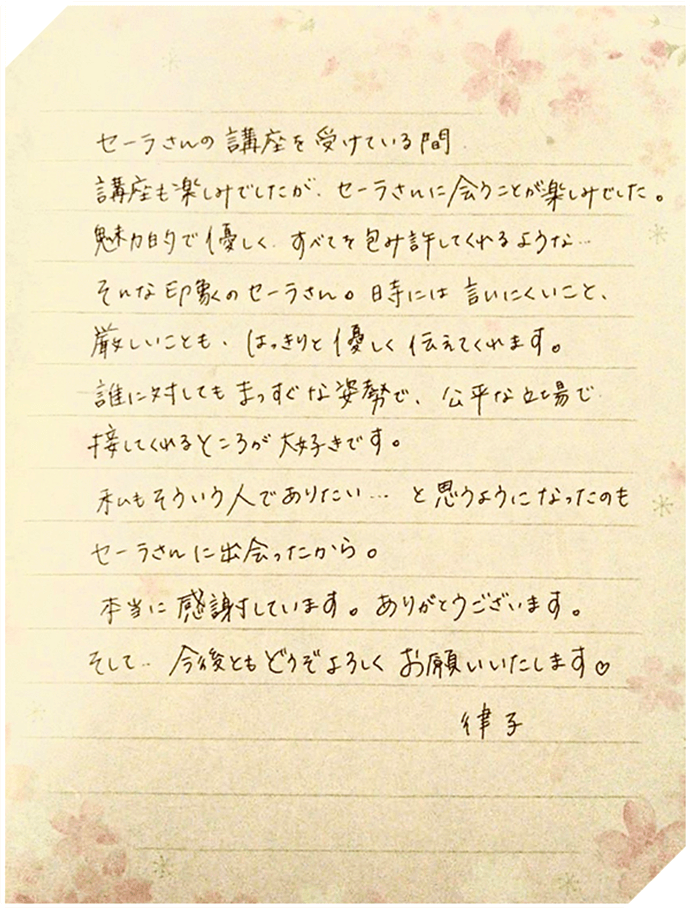 セーラさんの講座を受けている間
講座も楽しみでしたが、セーラさんに会うことが楽しみでした。
魅力的で優しく、すべてを包み許してくれるような…
そんな印象のセーラさん。時には言いにくいこと、
厳しいことも、はっきりと優しく伝えてくれます。
誰に対してもまっすぐな姿勢で、公平な立場で
接してくれるところが大好きです。
私もそういう人でありたい…と思うようになったのも
セーラさんに出会ったから。
本当に感謝しています。ありがとうございます。
そして…今後ともどうぞよろしくお願いいたします♡
律子